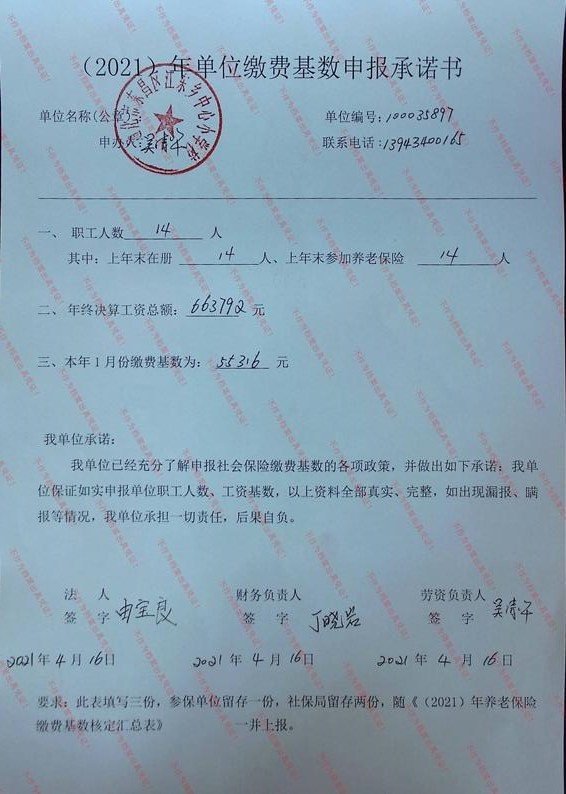 （2021）年单位缴费基数申报承诺书
单位名称(公章)
单位编号:100035897
申办人:吴清平
联系电话:13943400165
一、 职工人数 14 人
其中: 上年末在册 14 人、上年末参加养老保险 14 人
二、年终决算工资总额: 663792 元
三、本年1月份缴费基数为: 55316 元
我单位承诺:
我单位已经充分了解申报社会保险缴费基数的各项政策，并做出如下承诺: 我单
位保证如实申报单位职工人数、工资基数，以上资料全部真实、完整，如出现漏报、瞒
报等情况，我单位承担一切责任，后果自负。
法 人 财务负责人 劳资负责人
签 字 曲宝良 签 字 丁晓岩 签 字 吴清平
2021年4月16日 2021年4月16日 2021年4月16日
要求: 此表填写三份，参保单位留存一份，社保局留存两份，随《（2021）年养老保险
缴费基数核定汇总表》 一并上报。